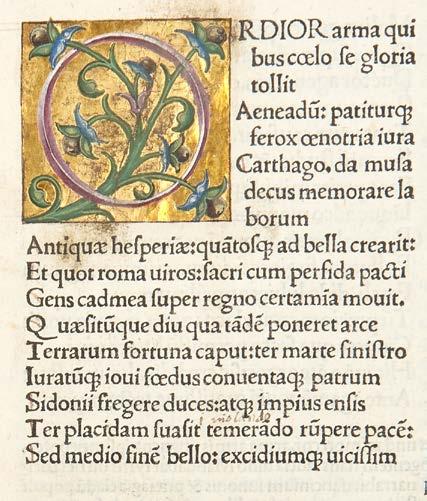 ORDIOR arma qui
bus cœlo se gloria
tollit
Aeneadū: patiturq;
ferox œnotria iura
Carthago. da musa
decus memorare la
borum
Antiquæ hesperiæ: quātosq; ad bella crearit:
Et quot roma uiros: sacri cum perfida pacti
Gens cadmea super regno certamīa mouit.
Quæsitūque diu qua tādē poneret arce
Terrarum fortuna caput: ter marte sinistro
Iuratūq; ioui fœdus conuentaq; patrum
Sidonii fregere duces: atq; impius ensis
Ter placidam suasit temerādo rūpere pacē:
Sed medio finē bello: excidiumq; uicissim